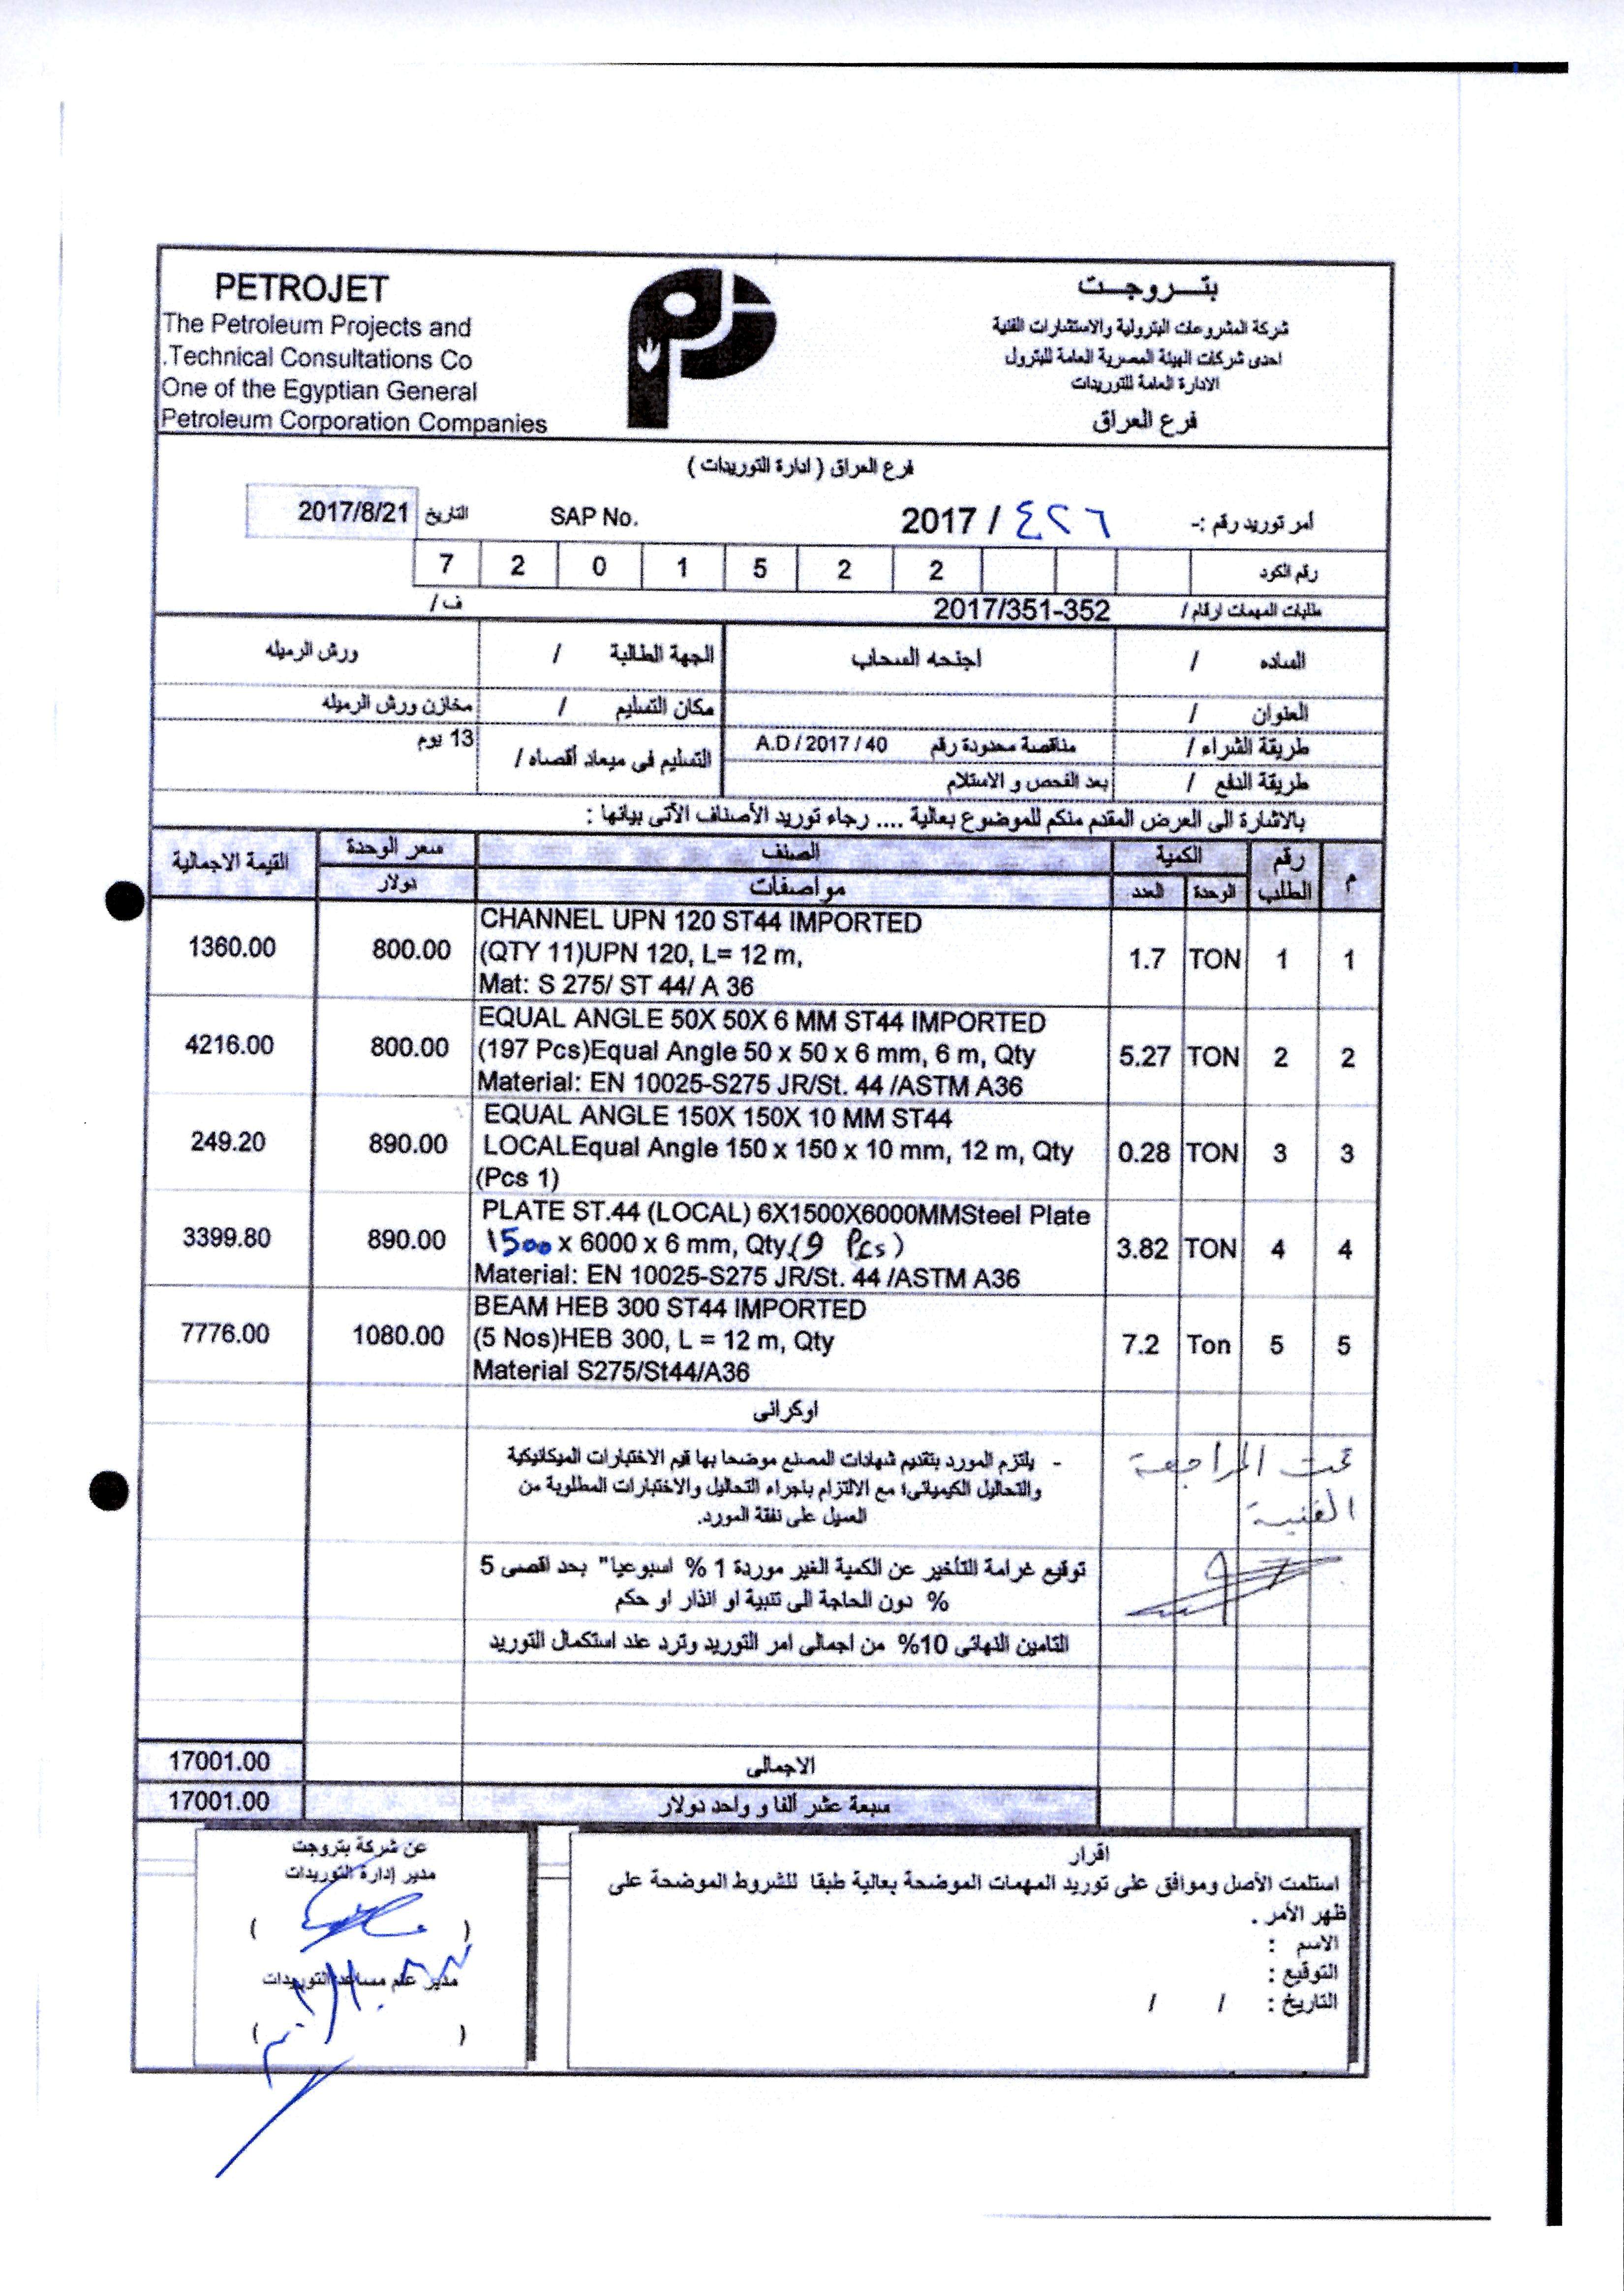 PETROJET
The Petroleum Projects and
.Technical Consultations Co
One of the Egyptian General
Petroleum Corporation Companies
بتـــروجــت
شركة المشروعات البترولية والاستشارات الفنية
احدى شركات الهيئة المصرية العامة للبترول
الادارة العامة للتوريدات
فرع العراق
فرع العراق ( ادارة التوريدات )
أمر توريد رقم :- ٤٢٦ / 2017 SAP No. التاريخ 2017/8/21
رقم الكود 7 2 0 1 5 2 2
طلبات المهمات ارقام / 2017/351-352 ف /
الساده / اجنحه السحاب الجهة الطالبة / ورش الرميله
العنوان / مكان التسليم / مخازن ورش الرميله
طريقة الشراء / مناقصة محدودة رقم A.D / 2017 / 40 التسليم فى ميعاد أقصاه / 13 يوم
طريقة الدفع / بعد الفحص و الاستلام
بالاشارة الى العرض المقدم منكم للموضوع بعالية .... رجاء توريد الأصناف الآتى بيانها :
م رقم الطلب الكمية الصنف سعر الوحدة القيمة الاجمالية
الوحدة العدد مواصفات دولار
CHANNEL UPN 120 ST44 IMPORTED
1360.00 800.00 (QTY 11)UPN 120, L= 12 m, 1.7 TON 1 1
Mat: S 275/ ST 44/ A 36
EQUAL ANGLE 50X 50X 6 MM ST44 IMPORTED
4216.00 800.00 (197 Pcs)Equal Angle 50 x 50 x 6 mm, 6 m, Qty 5.27 TON 2 2
Material: EN 10025-S275 JR/St. 44 /ASTM A36
EQUAL ANGLE 150X 150X 10 MM ST44
249.20 890.00 LOCALEqual Angle 150 x 150 x 10 mm, 12 m, Qty 0.28 TON 3 3
(Pcs 1)
PLATE ST.44 (LOCAL) 6X1500X6000MMSteel Plate
3399.80 890.00 1500 x 6000 x 6 mm, Qty.(9 Pcs) 3.82 TON 4 4
Material: EN 10025-S275 JR/St. 44 /ASTM A36
BEAM HEB 300 ST44 IMPORTED
7776.00 1080.00 (5 Nos)HEB 300, L = 12 m, Qty 7.2 Ton 5 5
Material S275/St44/A36
اوكرانى
- يلتزم المورد بتقديم شهادات المصنع موضحا بها قيم الاختبارات الميكانيكية
والتحاليل الكيميائى؛ مع الالتزام باجراء التحاليل والاختبارات المطلوبة من
العميل على نفقة المورد.
تمت المراجعة
الفنية
توقيع غرامة التأخير عن الكمية الغير موردة 1 % اسبوعيا" بحد اقصى 5
% دون الحاجة الى تنبية او انذار او حكم
التامين النهائى 10% من اجمالى امر التوريد وترد عند استكمال التوريد
الاجمالى 17001.00
سبعة عشر ألفا و واحد دولار 17001.00
اقرار
استلمت الأصل وموافق على توريد المهمات الموضحة بعالية طبقا للشروط الموضحة على
ظهر الأمر .
الاسم :
التوقيع :
التاريخ : / /
عن شركة بتروجت
مدير إدارة التوريدات
( )
مدير عام مساعد التوريدات
( )